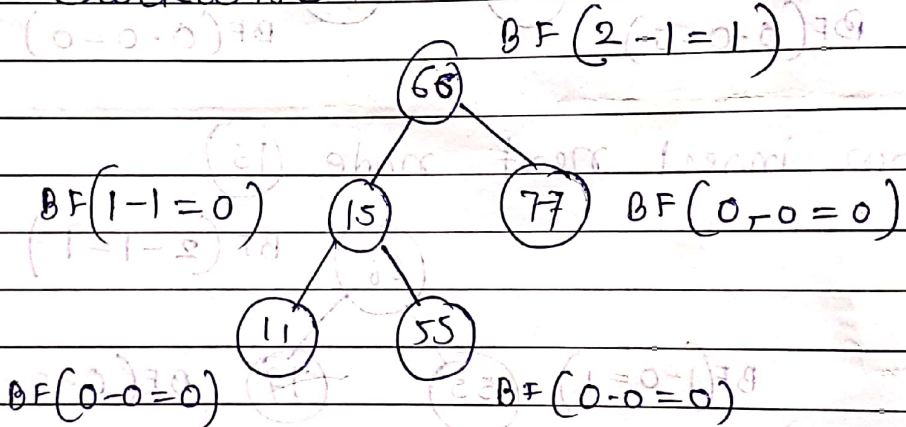 BF(2-1=1)
66
BF(1-1=0) 15 77 BF(0-0=0)
11 55
BF(0-0=0) BF(0-0=0)